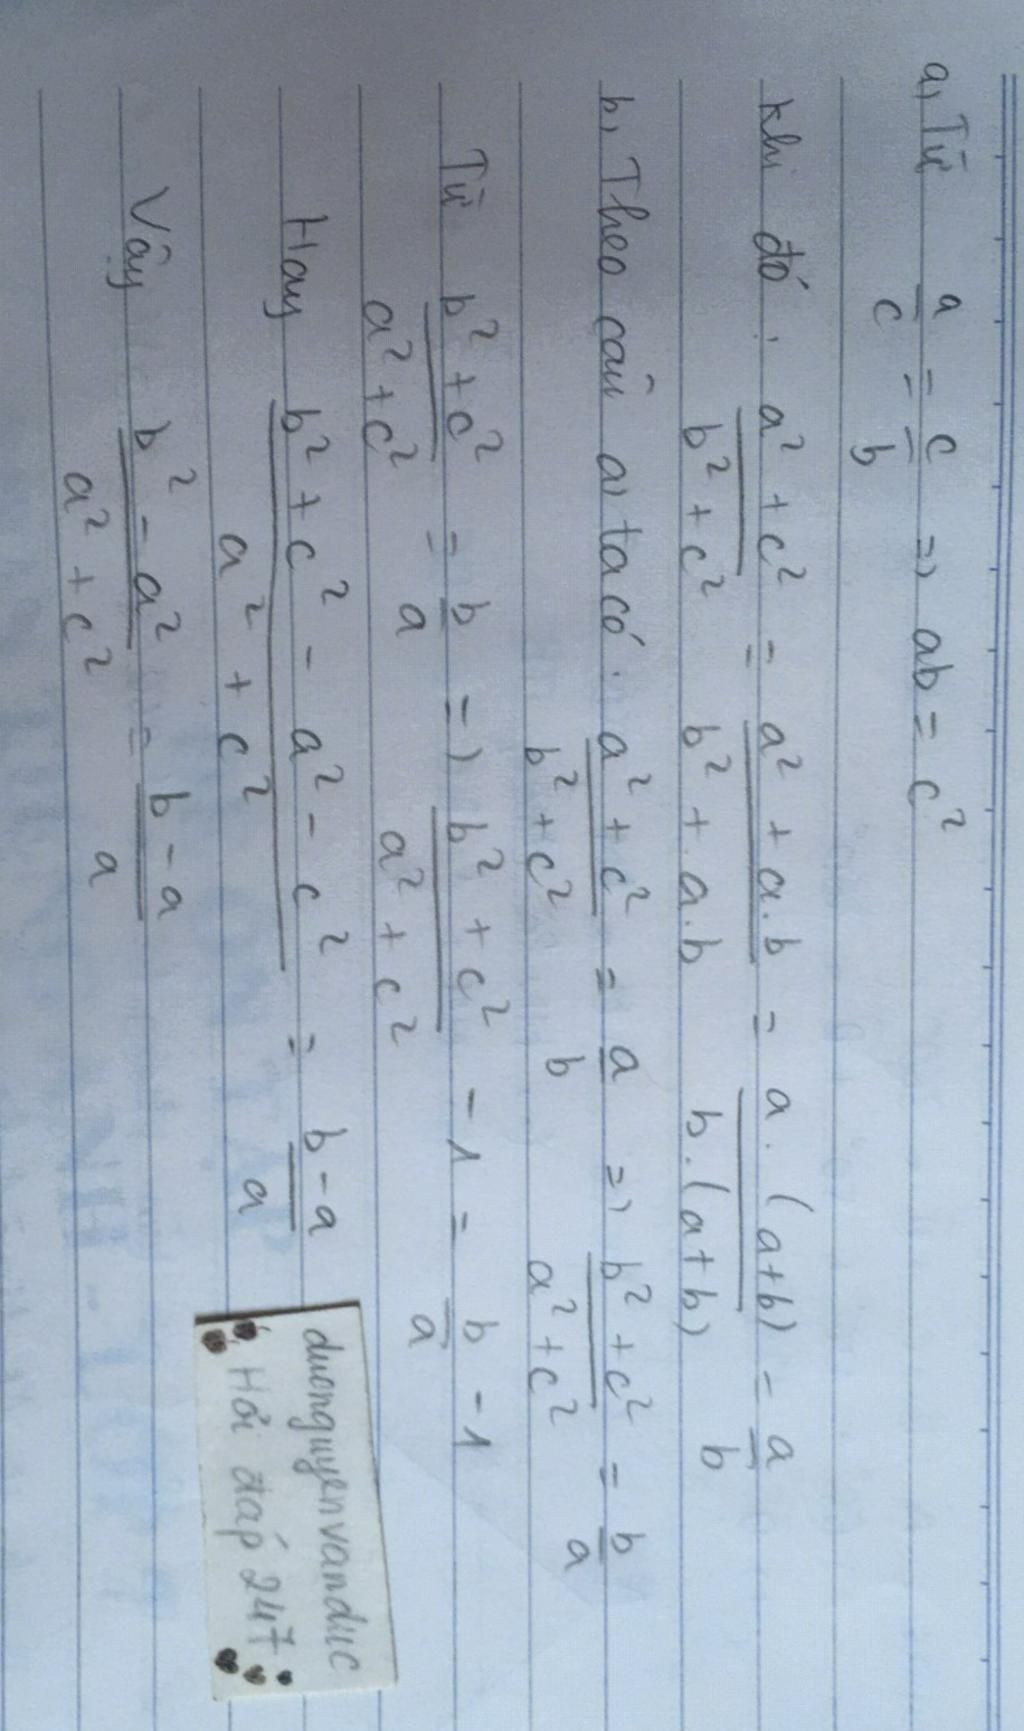 a, Từ a/c = c/b => ab = c²
Khi đó: a² + c² / b² + c² = a² + a.b / b² + a.b = a.(a+b) / b.(a+b) = a/b
b, Theo câu a, ta có: a² + c² / b² + c² = a/b => b² + c² / a² + c² = b/a
Từ b² + c² / a² + c² = b/a => b² + c² / a² + c² - 1 = b/a - 1
Hay b² + c² - a² - c² / a² + c² = b - a / a
Vậy b² - a² / a² + c² = b - a / a
duonguyenvanduc
Hỏi đáp 247